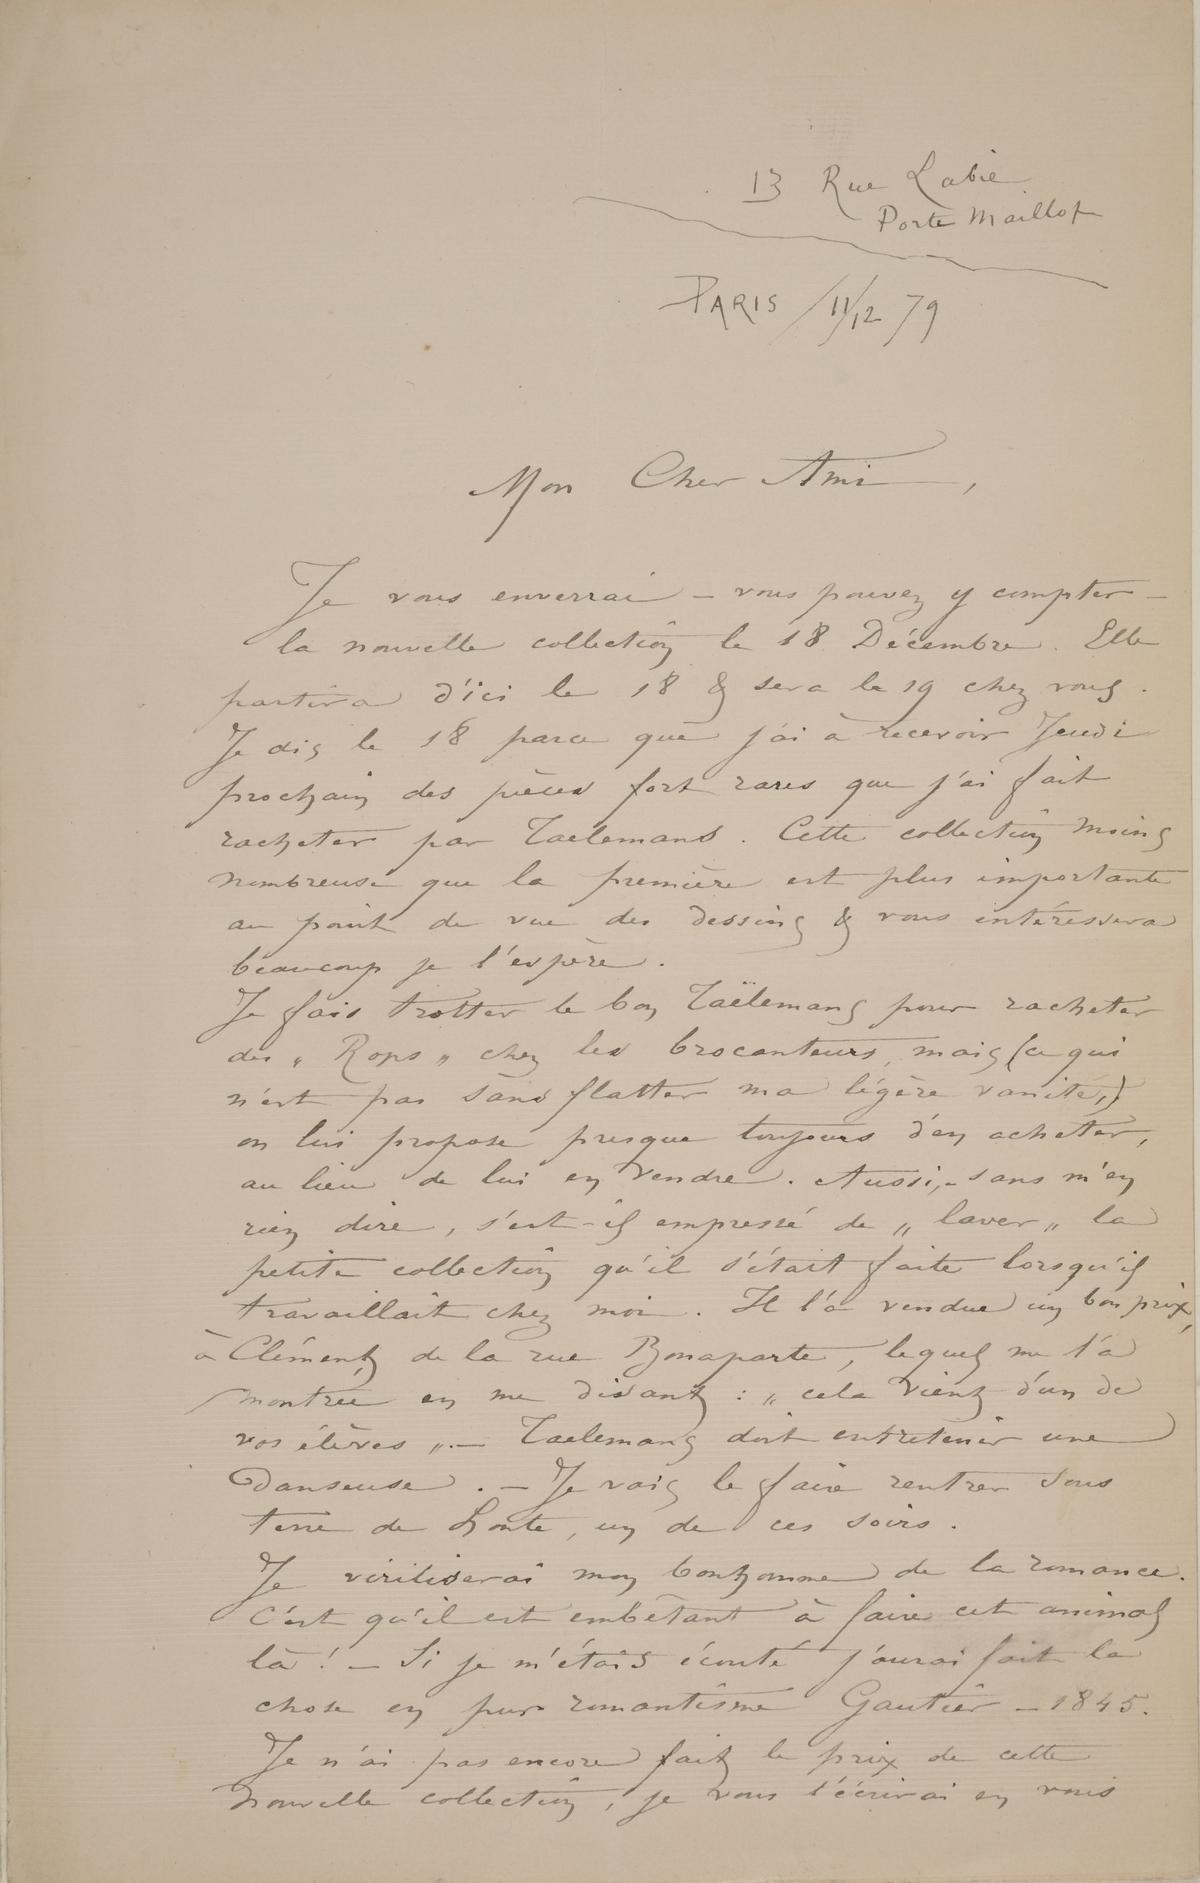 13 Rue Labie
Porte Maillot
PARIS /11/12 79
Mon Cher Ami,
Je vous enverrai – vous pouvez y compter –
la nouvelle collection le 18 Décembre. Elle
partira d'ici le 18 & sera le 19 chez vous.
Je dis le 18 parce que j'ai à recevoir Jeudi
prochain des pièces fort rares que j'ai fait
racheter par Taelemans. Cette collection moins
nombreuse que la première est plus importante
au point de vue des dessins & vous intéressera
beaucoup je l'espère.
Je fais trotter le bon Taëlemans pour racheter
des „ Rops „ chez les brocanteurs, mais (ce qui
n'est pas sans flatter ma légère vanité,)
on lui propose presque toujours d'en acheter,
au lieu de lui en vendre. Aussi, – sans m'en
rien dire, s'est-il empressé de „ laver „ la
petite collection qu'il s'était faite lorsqu'il
travaillait chez moi. Il l'a vendue un bon prix,
à Clément, de la rue Bonaparte, lequel me l'a
montrée en me disant : „ cela vient d'un de
vos élèves „. – Taelemans doit entretenir une
Danseuse. – Je vais le faire rentrer sous
terre de honte, un de ces soirs.
Je viriliserai mon bonhomme de la romance.
C'est qu'il est embêtant à faire cet animal
là ! – Si je m'étais écouté j'aurai fait la
chose en pur romantisme Gautier – 1845.
Je n'ai pas encore fait le prix de cette
nouvelle collection, je vous l'écrirai en vous